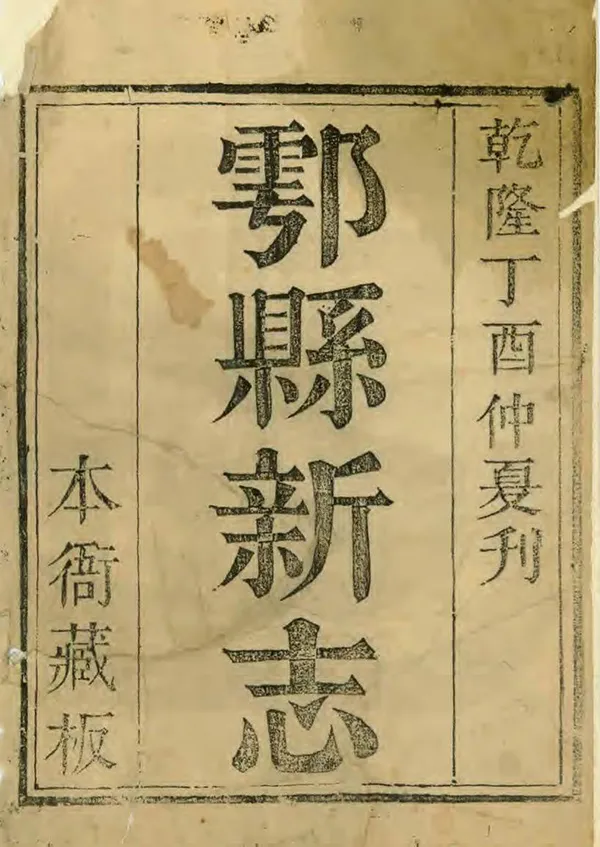 乾隆丁酉仲夏刋
鄠縣新志
本衙藏板